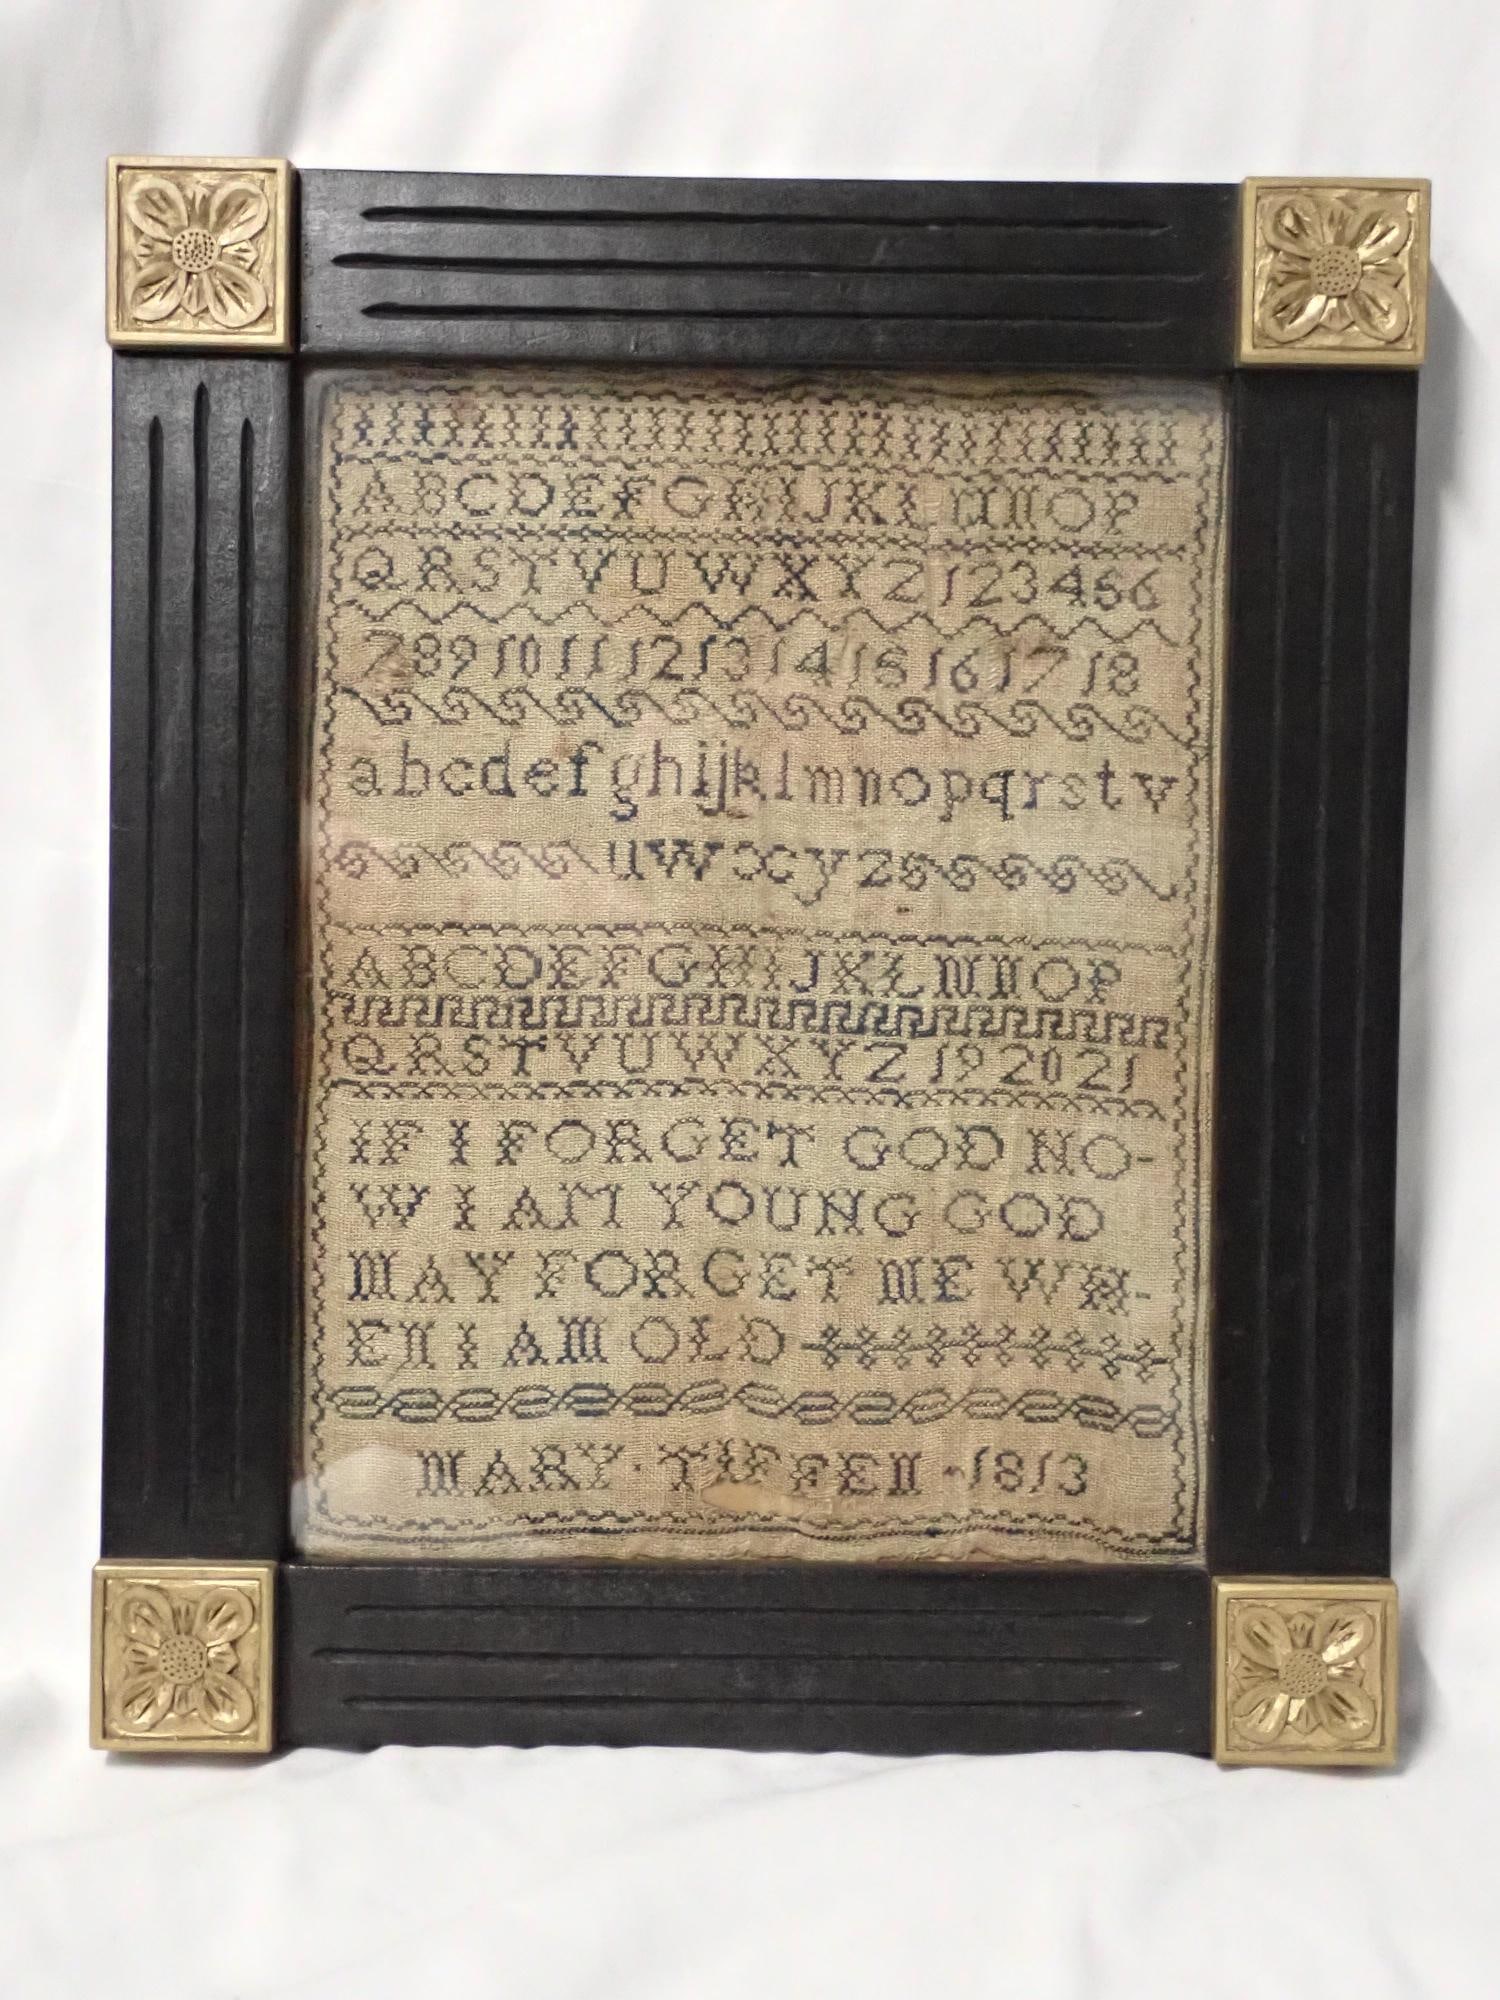 ABCDEFGHIJKLMNOP
QRSTVUWXYZ123456
789101112131415161718
abcdefghijklmnopqrstv
uwxyz
ABCDEFGHIJKLMNOP
QRSTVUWXYZ192021
IF I FORGET GOD NO-
W I AM YOUNG GOD
MAY FORGET ME WH-
EN I AM OLD
MARY·TIFFEN·1813